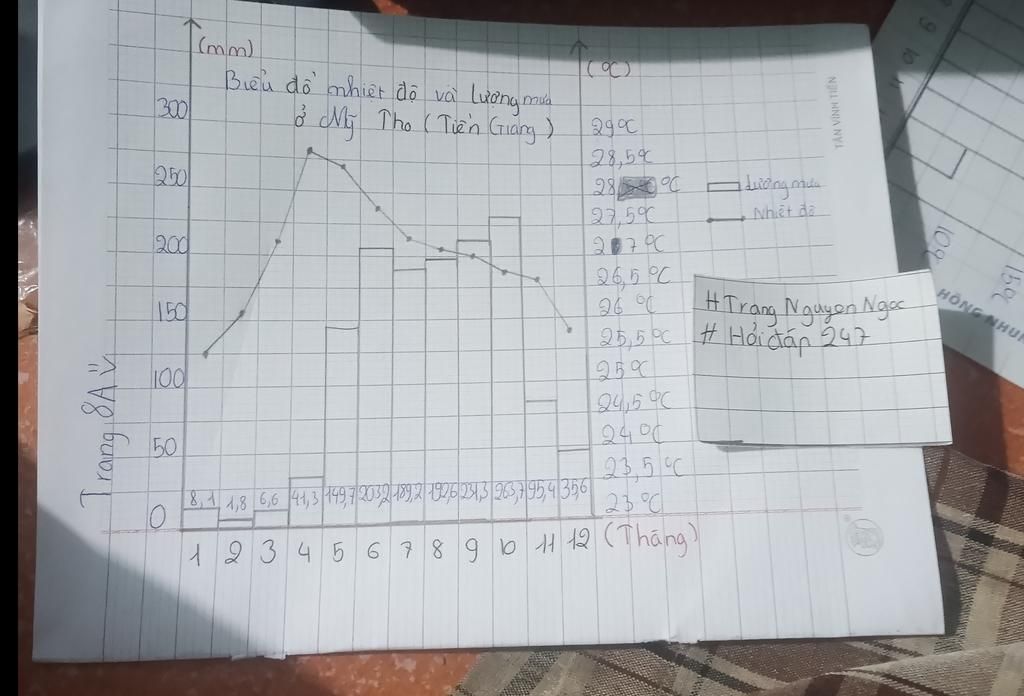 (mm)
(°C)
Biểu đồ nhiệt độ và lượng mưa
ở Mỹ Tho (Tiền Giang)
300
250
200
150
100
50
0
29°C
28,5°C
28 °C
27,5°C
27°C
26,5°C
26°C
25,5°C
25°C
24,5°C
24°C
23,5°C
23°C
Lượng mưa
Nhiệt độ
8,1 1,8 6,6 41,3 149,7 203,2 189,2 192,6 231,3 263,7 95,4 35,6
1 2 3 4 5 6 7 8 9 10 11 12 (Tháng)
Trang 8A
# Trang Nguyen Ngoc
# Hỏi đáp 247
TÂN VĨNH TIẾN
HỒNG NHUN